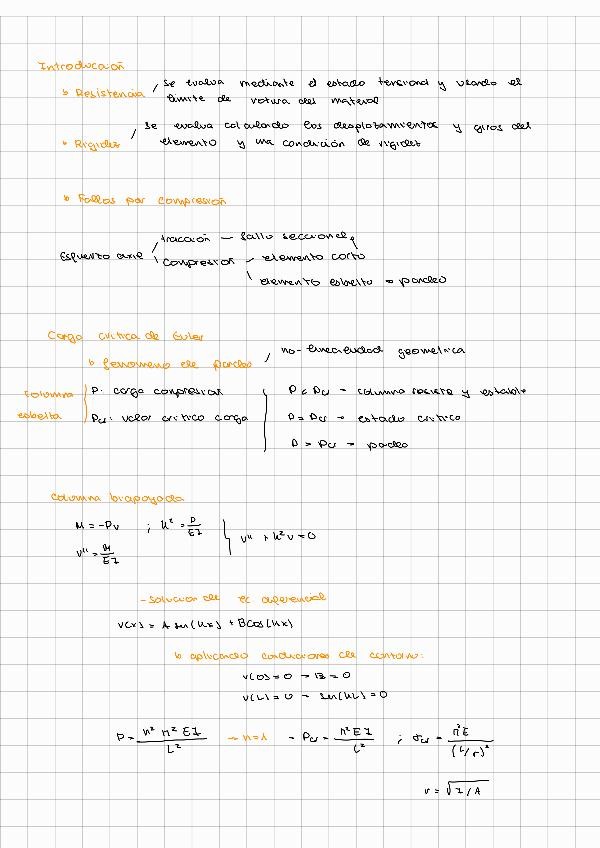 Introducción
↳ Resistencia / se evalua mediante el estado tensional y usando el
limite de rotura del material
↳ Rigidez / se evalua calculando los desplazamientos y giros del
elemento y una condición de rigidez
↳ Fallos por compresión
Esfuerzo axil / tracción – fallo seccional
\ compresión – elemento corto
\ elemento esbelto → pandeo
Carga critica de Euler
↳ fenomeno de pandeo / no-linealidad geometrica
columna esbelta
P: carga compresion
Pcr: valor critico carga
P < Pcr – columna resiste y estable
P = Pcr → estado critico
P > Pcr – pandeo
Columna biapoyada
M = -Pv ; k² = P/EI
v'' = M/EI
v'' + k²v = 0
- Solucion de ec diferencial
v(x) = A sen(kx) + B cos(kx)
↳ aplicando condiciones de contorno:
v(0) = 0 → B = 0
v(L) = 0 → sen(kL) = 0
P = n² π² EI / L² → n=1 → Pcr = π² EI / L² ; σcr = π²E / (L/r)²
r = √I/A